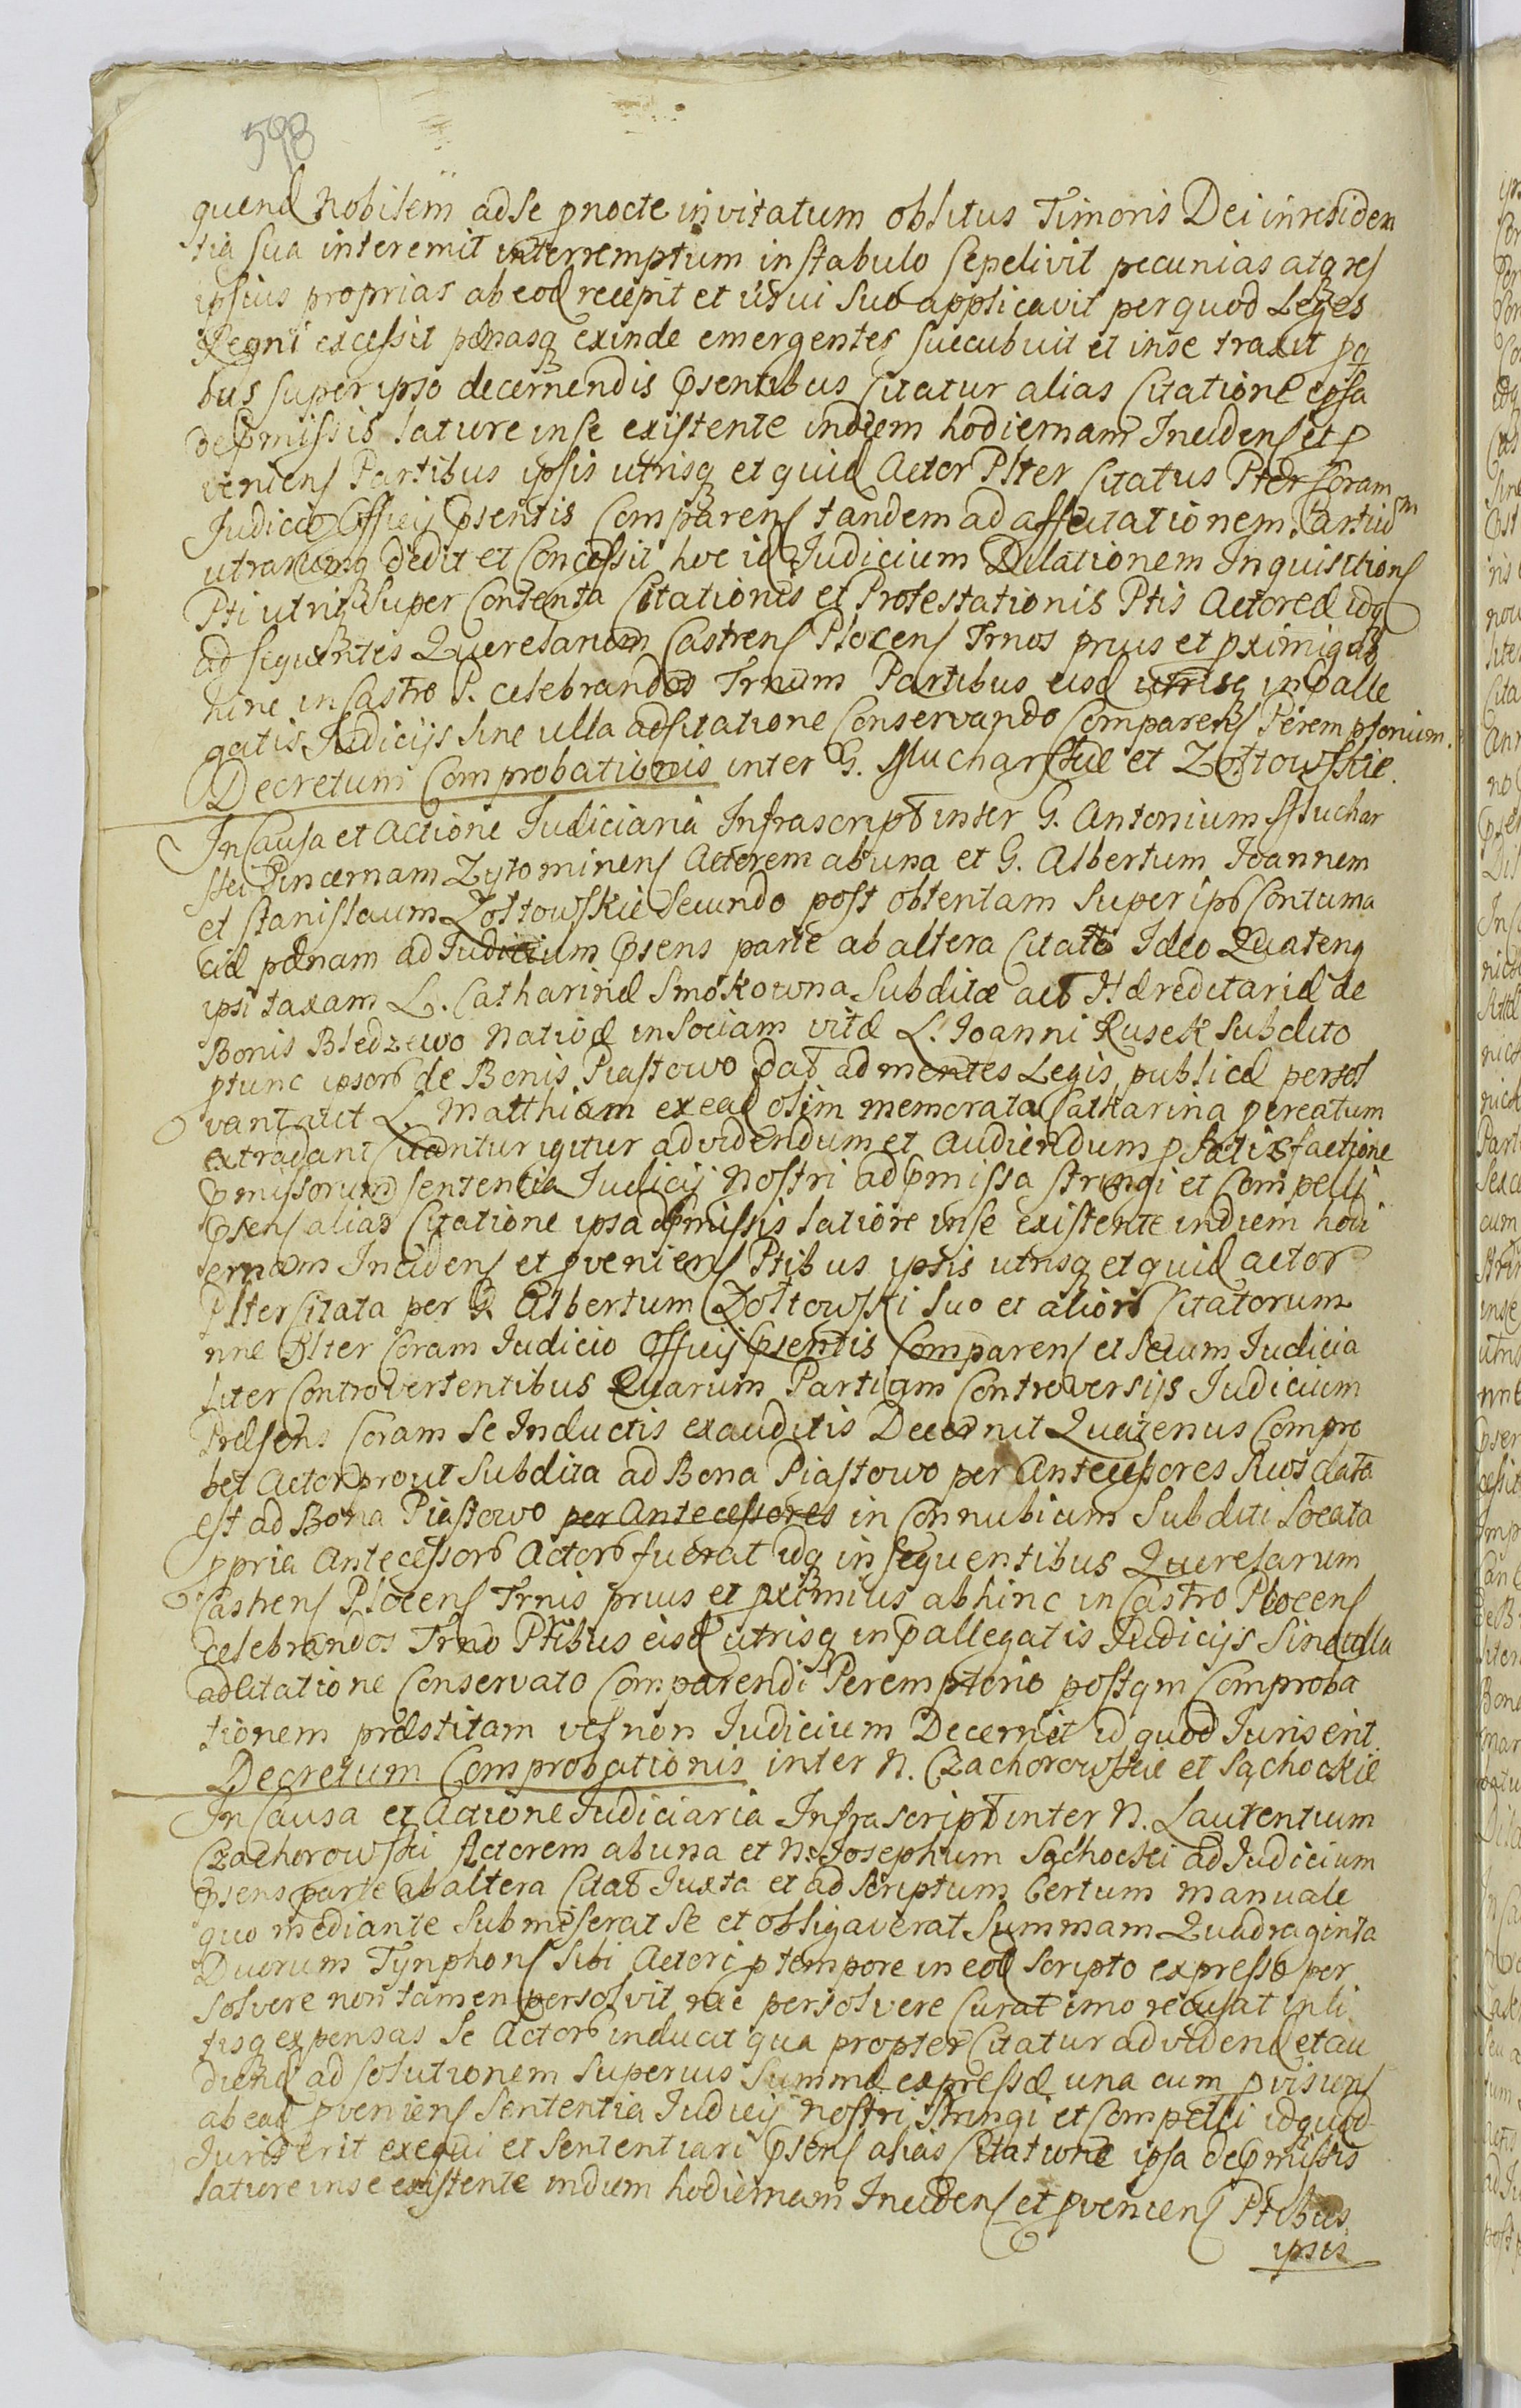 598
quend Nobilem ad se pnocte invitatum oblitus Timoris Dei in residen
tia sua interemit interremptum in stabulo sepelivit pecunias atq res
ipsius proprias ab eod recepit et usui suo applicavit per quod Leges
Regni excessit pænasq exinde emergentes succubuit et in se traxit pq
bus super ipso decernendis Psentibus Citatur alias Citatione ipsa
de Pmissis latiore in se existente in diem hodiernam Incidens et p
veniens Partibus ipsis utrisq et quid Actor Plter Citatus Pter Coram
Judicio Officij Psentis Comparens tandem ad affectationem Partium
utrarumq dedit et Concessit hoc id Judicium Dilationem Inquisitions
Pti utriq super Contenta Citationis et Protestationis Ptis Actoreæ idq
ad sequentes Querelarum Castrens Plocens Trnos prius et pximiq ab
hinc in Castro P. celebrandos Trnum Partibus eisd utrisq in Palle
gatis Judicijs sine ulla adcitatione Conservando Comparens Peremptorium.
Decretum Comprobationis inter G. Mucharskie et Zołtowskie.
In Causa et Actione Judiciaria Infrascript inter G. Antonium Muchar
ski Pincernam Zytominens Actorem ab una et G. Albertum Joannem
et Stanislaum Zołtowskie secundo post obtentam super ips Contuma
ciæ pænam ad Judicium Psens parte ab altera Citato Ideo Quatenq
ipsi taxam L. Catharinæ Smokowna Subditæ act Hæreditariæ de
Bonis Bledzewo Nativæ in Sociam vitæ L. Joanni Rusek Subdito
ptunc ipsor de Bonis Piastowo Dat ad mentes Legis publicæ persol
vant aut L. Matthiam ex ead olim memorata Catharina pcreatum
extradant Citantur igitur ad videndum et audiendum p satisfactione
Pmissorum sententia Judicij Nostri ad Pmissa stringi et Compelli.
Psens alias Citatione ipsa de Pmissis latiore in se existente in diem hodi
ernam Incidens et pveniens Ptibus ipsis utrisq et quid actor
Plter Citata per G Albertum Zołtowski suo et alior Citatorum
nne Plter Coram Judicio Officij Psentis Comparens et secum Judicia
liter Controvertentibus Quarum Partium Controversijs Judicium
Præsens Coram se Inductis exauditis Decernit Quatenus Compro
bet Actor prout Subdita ad Bona Piastowo per Antecessores suos data
est ad Bona Piastowo per Antecessores in Connubium Subditi Locata
ppria Antecessor Actor fuerat idq in sequentibus Querelarum
Castrens Plocens Trnis prius et pximius abhinc in Castro Plocens
celebrandos Trno Ptibus eisd utrisq in Pallegatis Judicijs sine ulla
adcitatione Conservato Comparendi Peremptorio postqm Comproba
tionem præstitam vel non Judicium Decernet id quod Juris erit.
Decretum Comprobationis inter N. Czachorowskie et Sąchockie
In Causa et Actione Judiciaria Infrascript inter N. Laurentium
Czachorowski Actorem ab una et N. Josephum Sąchocki ad Judicium
Psens parte ab altera Citat Juxta et ad scriptum Certum manuale
quo mediante submiserat se et obligaverat summam Quadraginta
Duorum Tynphons sibi Actori p tempore in eod scripto expresso per
solvere non tamen persolvit nec persolvere Curat imo recusat in li
tisq expensas se Actor inducit qua propter Citatur ad vidend et au
diend ad solutionem superius summæ expressæ una cum pvisions
ab ead pveniens sententia Judicij Nostri stringi et Compelli id quod
Juris erit exequi et sententiari Psens alias Citatione ipsa de Pmissis
latiore in se existente in diem hodiernam Incidens et pveniens Ptibus
ipsis